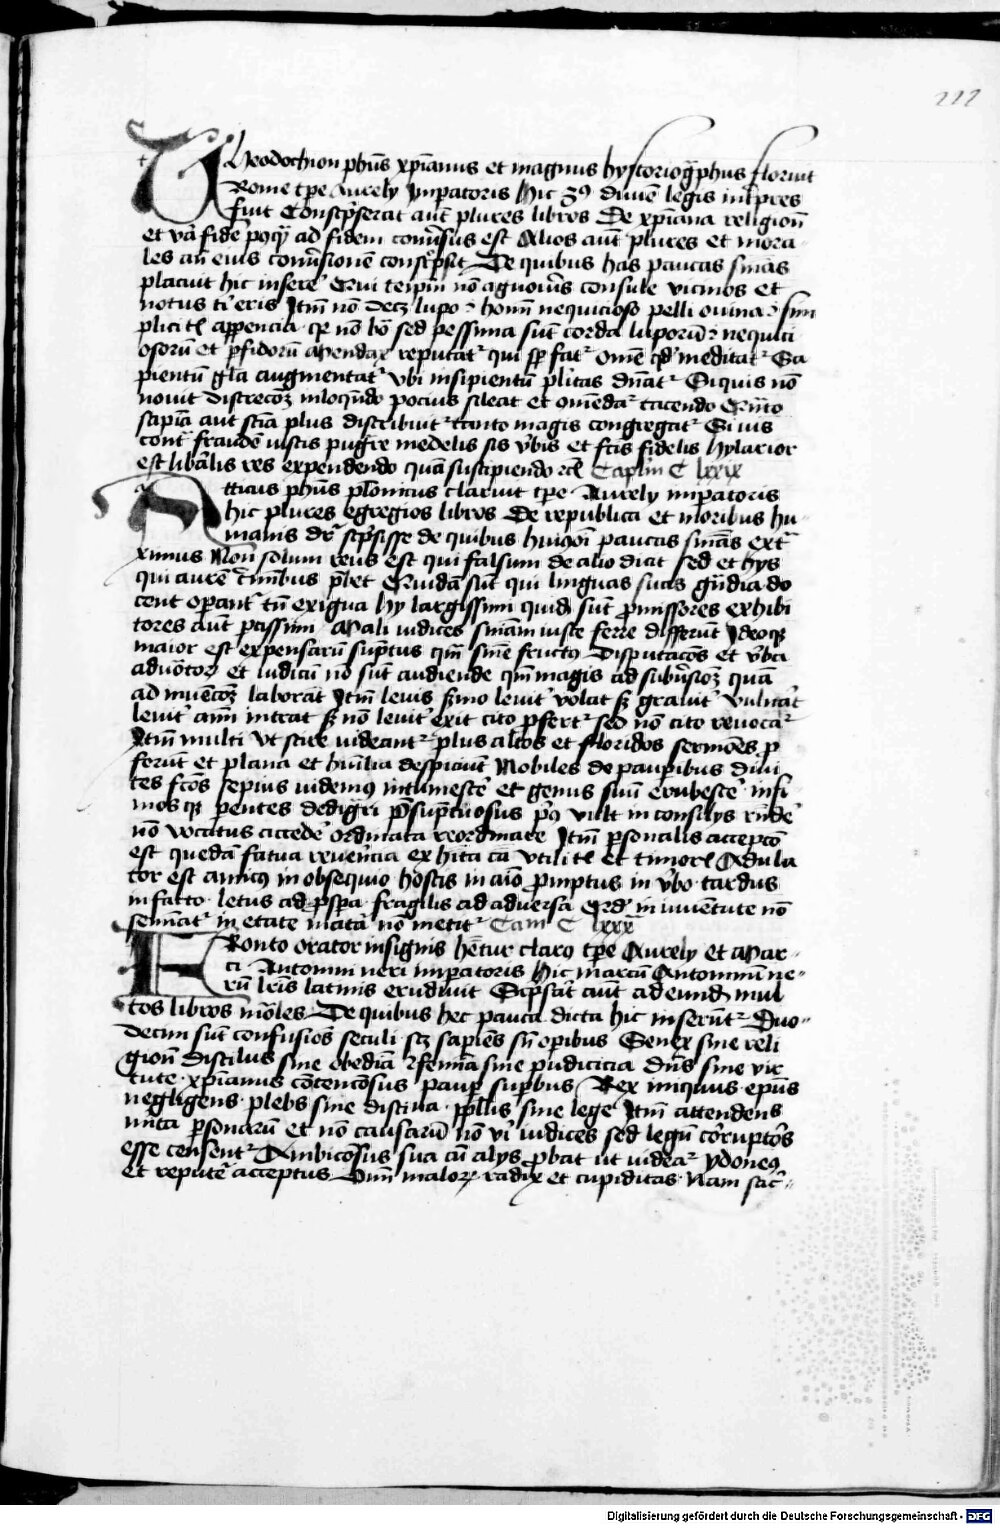 222
Theodochion phus xpianus et magnus hystoriogphus floruit
Rome tpe Aurely Imperatoris hic divine legis intpres
fuit Conscpserat aut plures libros De xpiana religion
et va fide posqua ad fidem conversus est Alios aut plures et mora-
les an eius conversione conscpsit De quibus has paucas sinas
placuit hic insere Qui teipm no agnovis consule vicinos et
notus ti eris Itm no decz lupo homi nequicioso pelli ovina sim
plicitl apparencia qr no bo sed pessima sut corda luporu nequici
osoru et pfidoru Mendax reputatr qui sp fatr omne qd meditatr Sa
pientu gla augmentatr ubi insipientu plitas dnatr Siquis no
novit discrecoz inloquedo pocius sileat et comedar tacendo Quto
sapia aut scia plus distribuitr tanto magis congregatr Si vis
contr fraude iustis pugre medelis sis verbis et fctis fidelis hylarior
est libalis res expendendo qua suscipiendo rcl Caplm C lxxix
Atticus phus platonicus claruit tpe Aurely imperatoris
hic plures egregios libros De republica et moribus hu
manis dr scpsisse de quibus huismodi paucas sinas extr
ximus Non solum reus est qui falsum de alio dicit sed et hys
qui aure criminibus pbet Quida sut qui linguas suas gradia do
cent operant tn exigua hy largissimi quid sut pmissores exhibi
tores aut ptissimi Mali iudices sniam iuste ferre differut Ideoqz
maior est expensaru suptus qm sine fructus Disputacos et verba
advocator et iudicu no sut audiende qm magis ad subversioz qua
ad inuecoz laborat Itm levis sermo levit volat sz gravit vulnerat
levit animi intrat sz no levit exit cito pfertr sed no cito revocar
Itm multi ut scire videantr plus altos et floridos sermoes p
ferut et plana et humlia despiciut Nobiles de paupibus divi
tes fctos sepius videmus intumesce et genus suu erubesce infi
mosqz pentes dedigri Psuptuosus pus vult in consilys runde
no vocatus accede ordinata reordinare Itm psonalis acceptio
est queda fatua revencia exhita ca utilitl et timorl Adula
tor est amicus in obsequio hostis in aio pmptus in verbo tardus
in facto letus ad pspa fragilis ad adversa Qd in iuventute no
seminatr in etate matura no metitr Cam C lxxx
Fronto orator insignis hetur clarus tpe Aurely et Mar-
ci Antonini veri imperatoris hic marcu Antoninu ve-
ru lris latinis erudivit Scpsat aut ad eund mul
tos libros morales De quibus hec pauca dicta hic inserutr Duo-
decim sut confusiones seculi scz sapies sn opibus Senex sine reli
gion discilus sine obedia femina sine pudicicia dns sine vir
tute xpianus cotenciosus paup supbus Rex iniquus epus
negligens plebs sine discina ppls sine lege Itm attendens
iuncta psonaru et no causaru no vi iudices sed legu coruptores
esse censentr Ambiciosus sua cu alys probat ut videar ydoneus
et reputer acceptus Omn malorz radix et cupiditas Nam sac-
Digitalisierung gefördert durch die Deutsche Forschungsgemeinschaft - DFG